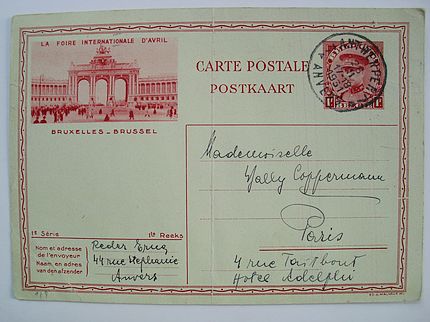 LA FOIRE INTERNATIONALE D'AVRIL
BRUXELLES - BRUSSEL
CARTE POSTALE
POSTKAART
ANTWERPEN
ANVERS
Mademoiselle
Wally Coppermann
Paris
4 rue Taitbout
Hotel Adelphi
1e Série
1e Reeks
Nom et adresse
de l'envoyeur
Naam, en adres
van den afzender
Reder
44 rue Stephanie
Anvers